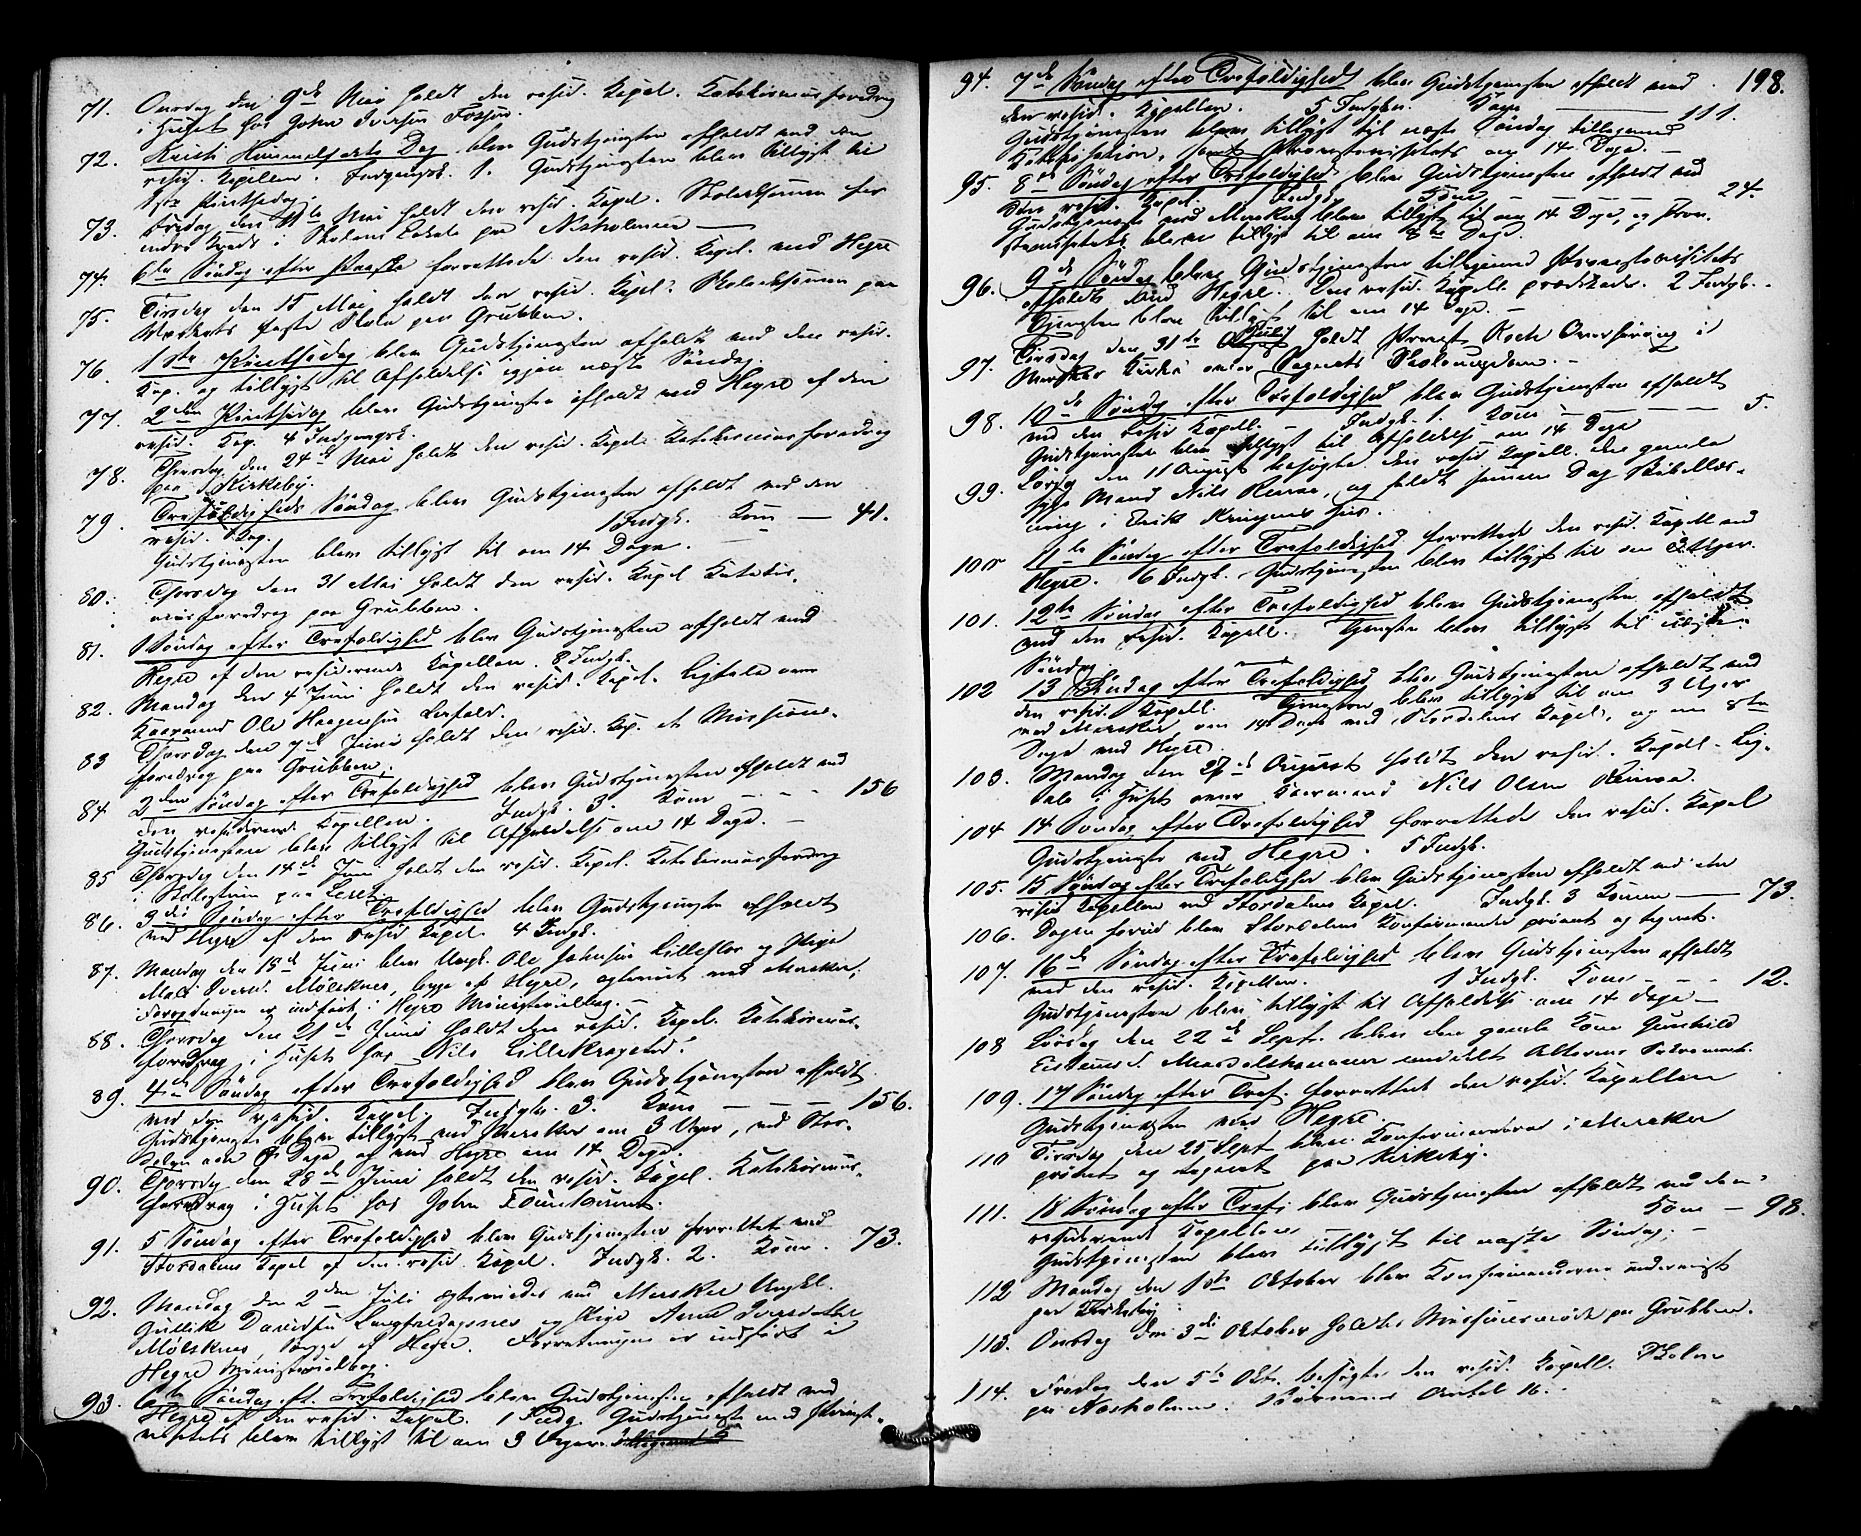 71. Onsdag den 9de Mai holdt den resid. Kapel. Katekismusforedrag
i Huset hos John Iversen Fossen.
72. Kristi Himmelfarts Dag blev Gudstjenesten afholdt ved den
resid. Kapellan. Indgangsk. 1. Gudstjenesten blev tillyst til
1ste Pintsedag.
73. Fredag den 11te Mai holdt den resid. Kapel. Skoleeksamen for
Kreds i Skolens Lokale paa
74. 6te Søndag efter Paaske forrettede den resid. Kapel. ved Hegre
75. Tirsdag den 15 Mai holdt den resid. Kapel. Skoleeksamen paa
Værkets faste Skole paa Grubben.
76. 1ste Pintsedag blev Gudstjenesten afholdt ved den resid.
Kap. og tillyst til Afholdelse igjen næste Søndag.
77. 2den Pintsedag blev Gudstjenesten afholdt ved Hegre af den
resid. Kap. 4 Indgangsk.
78. Thorsdag den 24de Mai holdt den resid. Kapel. Katekismusforedrag
paa Kirkeby.
79. Trefoldigheds Søndag blev Gudstjenesten afholdt ved den
resid. Kap. 1 Indgk. Kom — 41.
Gudstjenesten blev tillyst til om 14 Dage.
80. Thorsdag den 31 Mai holdt den resid. Kapel Katekis-
musforedrag paa Grubben.
81. 1 Søndag efter Trefoldighed blev Gudstjenesten afholdt ved
Hegre af den residerende Kapellan. 8 Indgk.
82. Mandag den 4 Juni holdt den resid. Kapel. Ligtale over
Kaarmand Ole Haagensen
83 Thorsdag den 7de Juni holdt den resid. Kap. et Missions-
foredrag paa Grubben.
84 2den Søndag efter Trefoldighed blev Gudstjenesten afholdt ved
den residerende Kapellan. Indgk. 3. Kom — 156
Gudstjenesten blev tillyst til Afholdelse om 14 Dage. —
85 Thorsdag den 14de Juni holdt den resid. Kapel. Katekismusforedrag
i Skolestuen paa
86. 3die Søndag efter Trefoldighed blev Gudstjenesten afholdt
ved Hegre af den resid Kapel. 4 Indgk.
87. Mandag den 18de Juni blev Ungk. Ole Johnsen Lilleflor og Pige
Iversd. Mølsknes, begge af Hegre, ægteviet ved Meraker;
Forretningen er indført i Hegre Ministerialbog. —
88. Thorsdag den 21de Juni holdt den resid. Kapel. Katekismus-
foredrag i Huset hos Nils Lillekragstad.
89. 4de Søndag efter Trefoldighed blev Gudstjenesten afholdt
ved den resid. Kapel. Indgk. 3. Kom — 156.
Gudstjeneste blev tillyst ved Meraker om 3 Uger, ved Stor-
dalen om 8 Dage og ved Hegre om 14 Dage.
90. Thorsdag den 28de Juni holdt den resid. Kapel. Katekismus-
foredrag i Huset hos John
91. 5 Søndag efter Trefoldighed blev Gudstjenesten forrettet ved
Stordalens Kapel af den resid. Kapel. Indgk. 2. Kom. 73.
92. Mandag den 2den Juli ægteviedes ved Meraker Ungkl.
Gullik Davidsen Langfaldagsnes og Pige Iversdatter
Mølsknes, begge af Hegre. Forretningen er indført i
Hegre Ministerialbog.
93. 6te Søndag ef. Trefoldighed blev Gudstjenesten afholdt ved
Hegre af den resid. Kapel. 1 Indg. Gudstjeneste med
blev tillyst til om 3 Uger.
94. 7de Søndag efter Trefoldighed blev Gudstjenesten afholdt ved 198.
den resid. Kapellan. 5 Indgk. Kom — 111.
Gudstjenesten blev tillyst til næste Søndag tilligemed
Katekisation, samt Provstevisitats om 14 Dage. —
95. 8de Søndag efter Trefoldighed blev Gudstjenesten afholdt ved
den resid. Kapel. Indgk. Kom — 24.
Gudstjeneste ved Meraker blev tillyst til om 14 Dage, og Prov-
stevisitats blev tillyst til om 8te Dage.
96. 9de Søndag blev Gudstjenesten tilligemed Provstevisitats
afholdt ved Hegre. Den resid. Kapell. prædikede. 2 Indgk.
Tjenesten blev tillyst til om 14 Dage. —
97. Tirsdag den 31te Juli holdt Provst Koch Overhøring i
Meraker Kirke over Sognets Skoleungdom. —
98. 10de Søndag efter Trefoldighed blev Gudstjenesten afholdt
ved den resid Kapell. — Indgk. 1. Kom — 5.
Gudstjenesten blev tillyst til Afholdelse om 14 Dage
99. Lørdag den 11 August besøgte den resid Kapell. den gamle
syge Mand Nils Renaa, og holdt samme Dag Bibellæs-
ning i Erik Hus.
100 11te Søndag efter Trefoldighed forrettede den resid. Kapell ved
Hegre. 6 Indgk. Gudstjenesten blev tillyst til om 3 Uger.
101. 12te Søndag efter Trefoldighed blev Gudstjenesten afholdt
ved den resid. Kapell. Tjenesten blev tillyst til næste
Søndag
102 13 Søndag efter Trefoldighed blev Gudstjenesten afholdt ved
den resid. Kapell. Tjenesten blev tillyst til om 3 Uger
ved Meraker, om 14 Dage ved Stordalens Kapel, og om 8te
Dage ved Hegre.
103. Mandag den 27de August holdt den resid. Kapell. Lig-
tale i Huset over Kaarmand Nils Olsen Renaa.
104 14 Søndag efter Trefoldighed forrettede den resid. Kapel
Gudstjeneste ved Hegre. 5 Indgk.
105. 15 Søndag efter Trefoldighed blev Gudstjenesten afholdt ved den
resid Kapellan ved Stordalens Kapel. Indgk. 3 Komm — 73.
106. Dagen forud blev Stordalens Konfirmander prøvet og tegnet.
107. 16de Søndag efter Trefoldighed blev Gudstjenesten afholdt
ved den resid. Kapellan. 1 Indgk. Kom — 12.
Gudstjenesten blev tillyst til Afholdelse om 14 Dage —
108 Lørdag den 22de Sept. blev den gamle Kone Gunhild
meddelt Alterens Sakrament.
109. 17 Søndag efter Tref. forrettet den resid. Kapellan
Gudstjenesten ved Hegre.
110 Tirsdag den 25 Sept blev Konfirmanderne i Meraker
prøvet og tegnet paa Kirkeby.
111. 18 Søndag efter Tref. blev Gudstjenesten afholdt ved den
residerende Kapellan Kom — 98.
Gudstjenesten blev tillyst til næste Søndag. —
112 Mandag den 1ste Oktober blev Konfirmanderne underviist
paa Kirkeby.
113. Onsdag den 3die Oktober holdtes Missionsmøde paa Grubben.
114. Fredag den 5te Okt. besøgte den resid. Kapell. Skolen
paa Børnenes Antal 16.